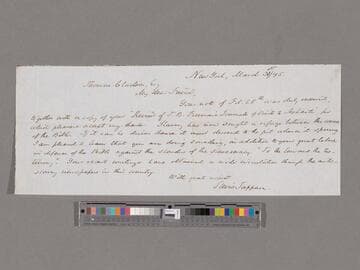 New York, March 31/45.
Thomas Clarkson, Esq.
My dear Friend,
Your note of Feb. 28th was duly received,
together with a copy of your "Review of J. B. Freeman's Journals of visits to Ashanti," for
which please accept my thanks. Slavery has ever sought a refuge between the covers
of the Bible. If it can be driven thence it must descend to the pit where it
I am pleased to learn that you are doing something, in addition to your great labors
in defence of the Bible against the slander of the slaveocracy. "To the law and the tes-
timony." Your recent writings have obtained a wide circulation through the anti-
slavery newspapers in this country.
With great respect
Lewis Tappan